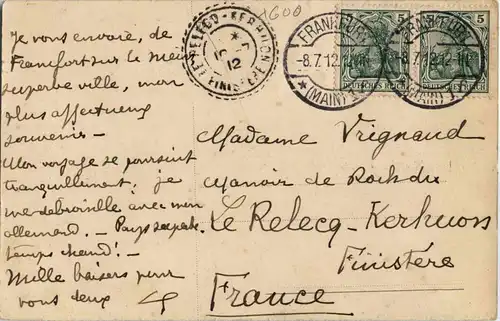 Je vous envoie, de
Francfort sur le Mein
superbe ville, mon
plus affectueux
souvenir —
Mon voyage se poursuit
tranquillement; je
me débrouille avec mon
allemand. — Pays superbe.
temps chaud! —
Mille baisers pour
vous deux
LE RELECQ-KERHUON
12
FINISTERE
1600
FRANKFURT
-8.7.12.
(MAIN)
FRANKFURT
8.7.12.
(MAIN)
5
5
DEUTSCHES REICH
DEUTSCHES REICH
Madame Vrignaud
Manoir de
Le Relecq-Kerhuon
Finistère
France